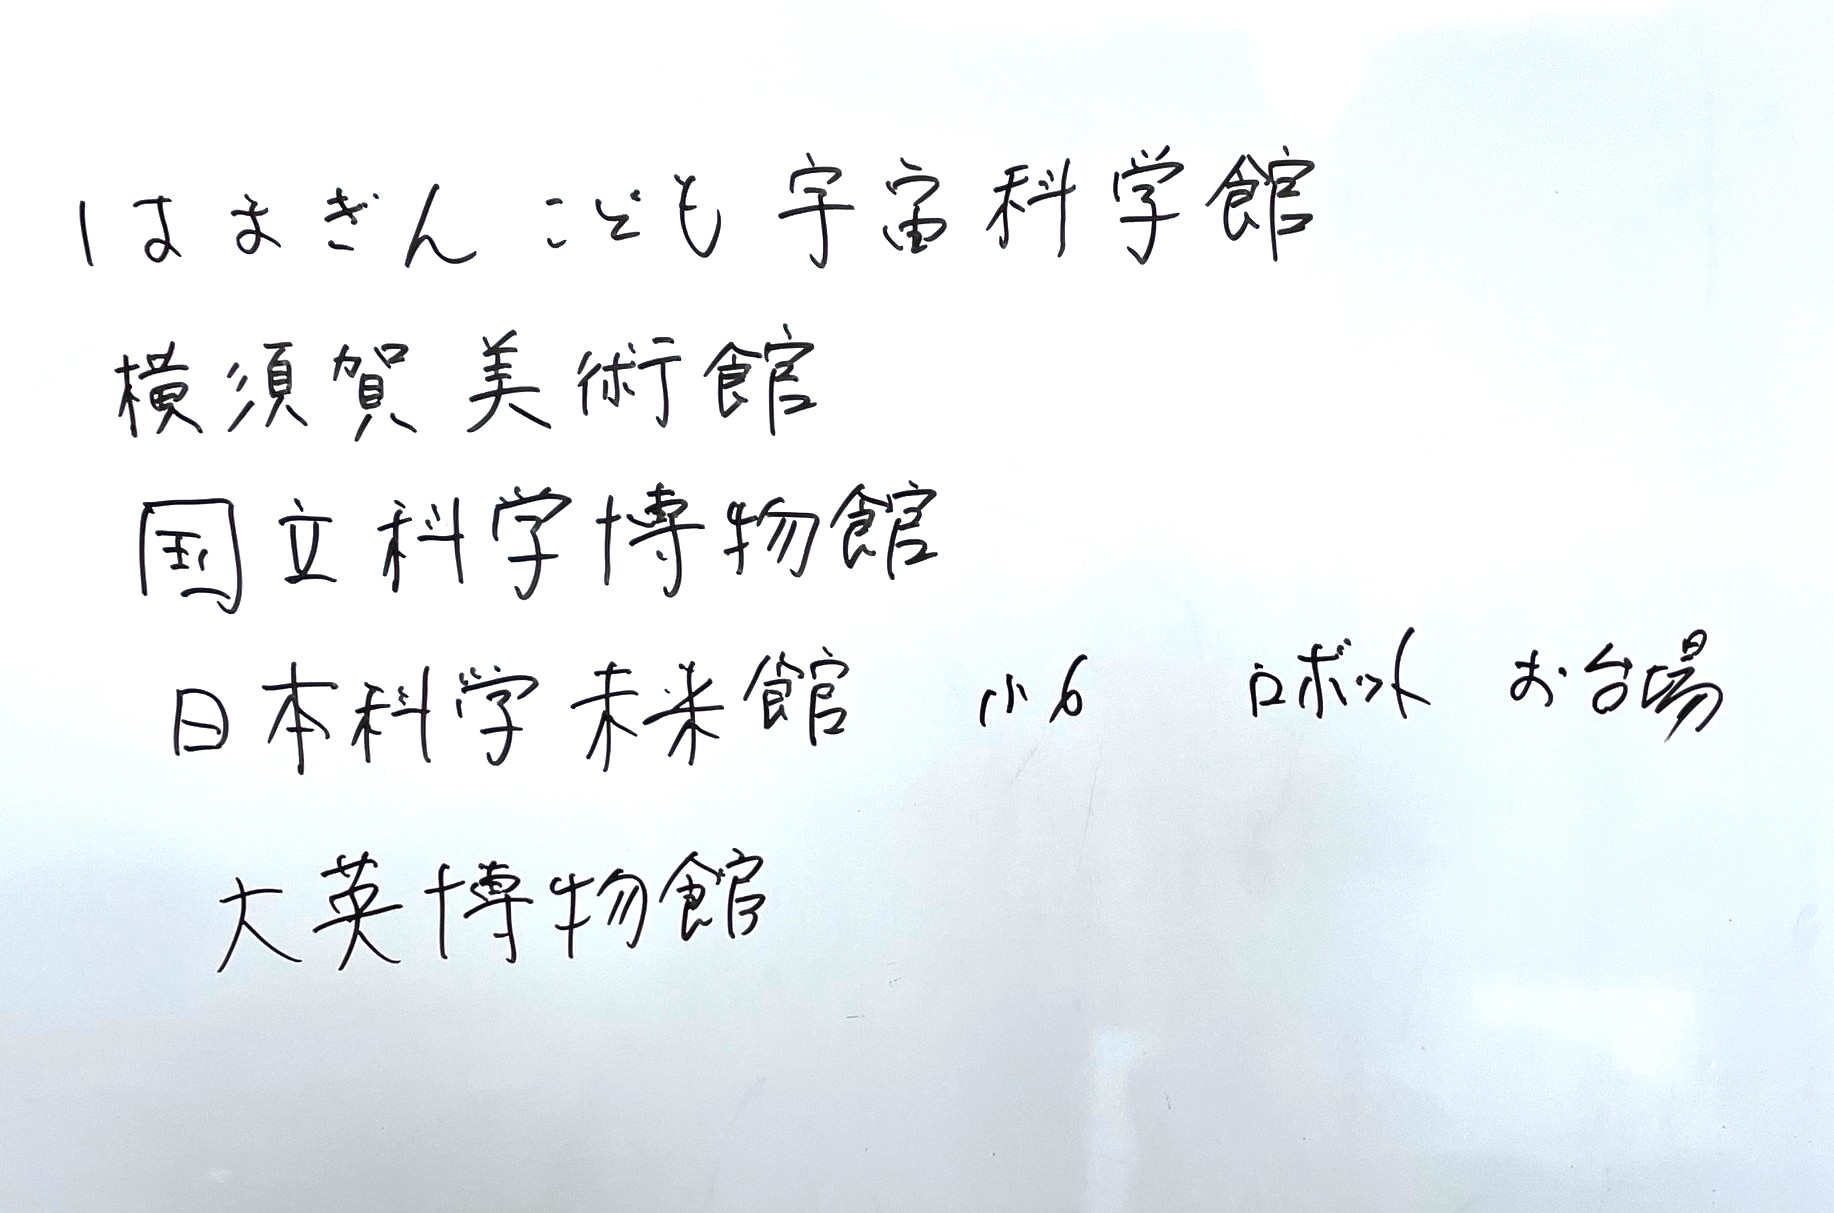 はまぎん こども 宇宙科学館
横須賀 美術館
国立科学博物館
日本科学未来館 小6 ロボット お台場
大英博物館